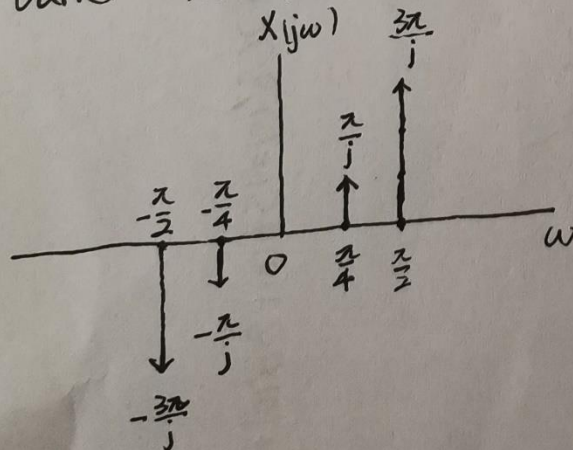 X(jω)
3π/j
π/j
-π/2
-π/4
0
π/4
π/2
ω
-π/j
-3π/j